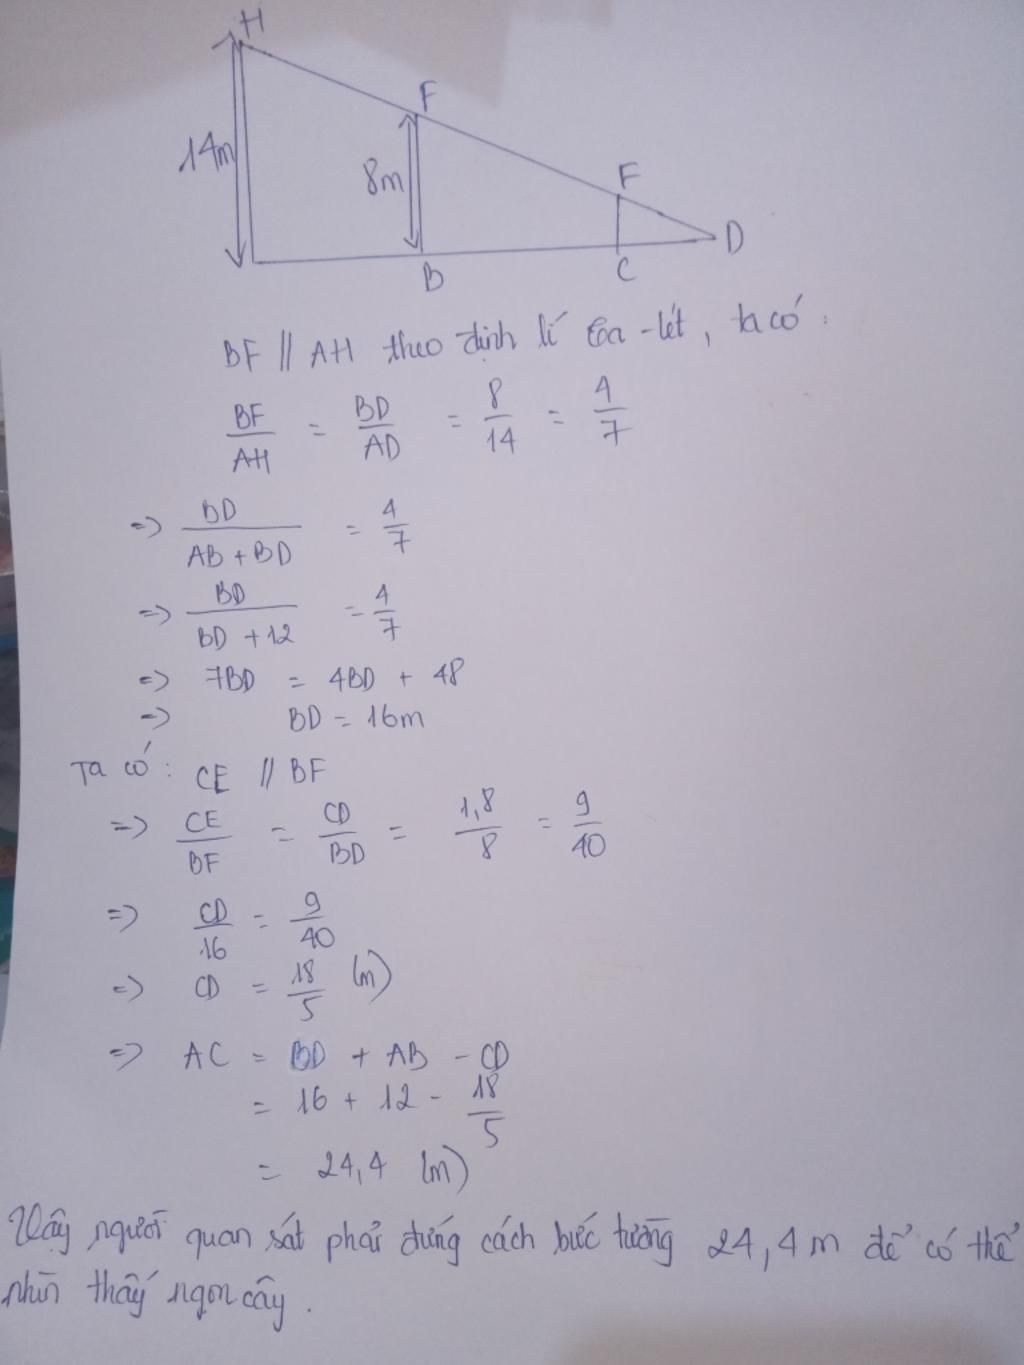 H
F
14m
8m
F
D
B
C
BF // AH theo định lí Ta-lét, ta có:
BF/AH = BD/AD = 8/14 = 4/7
=> BD/(AB + BD) = 4/7
=> BD/(BD + 12) = 4/7
=> 7BD = 4BD + 48
=> BD = 16m
Ta có: CE // BF
=> CE/BF = CD/BD = 1,8/8 = 9/40
=> CD/16 = 9/40
=> CD = 18/5 (m)
=> AC = BD + AB - CD
= 16 + 12 - 18/5
= 24,4 (m)
Vậy người quan sát phải đứng cách bức tường 24,4m để có thể
nhìn thấy ngọn cây.